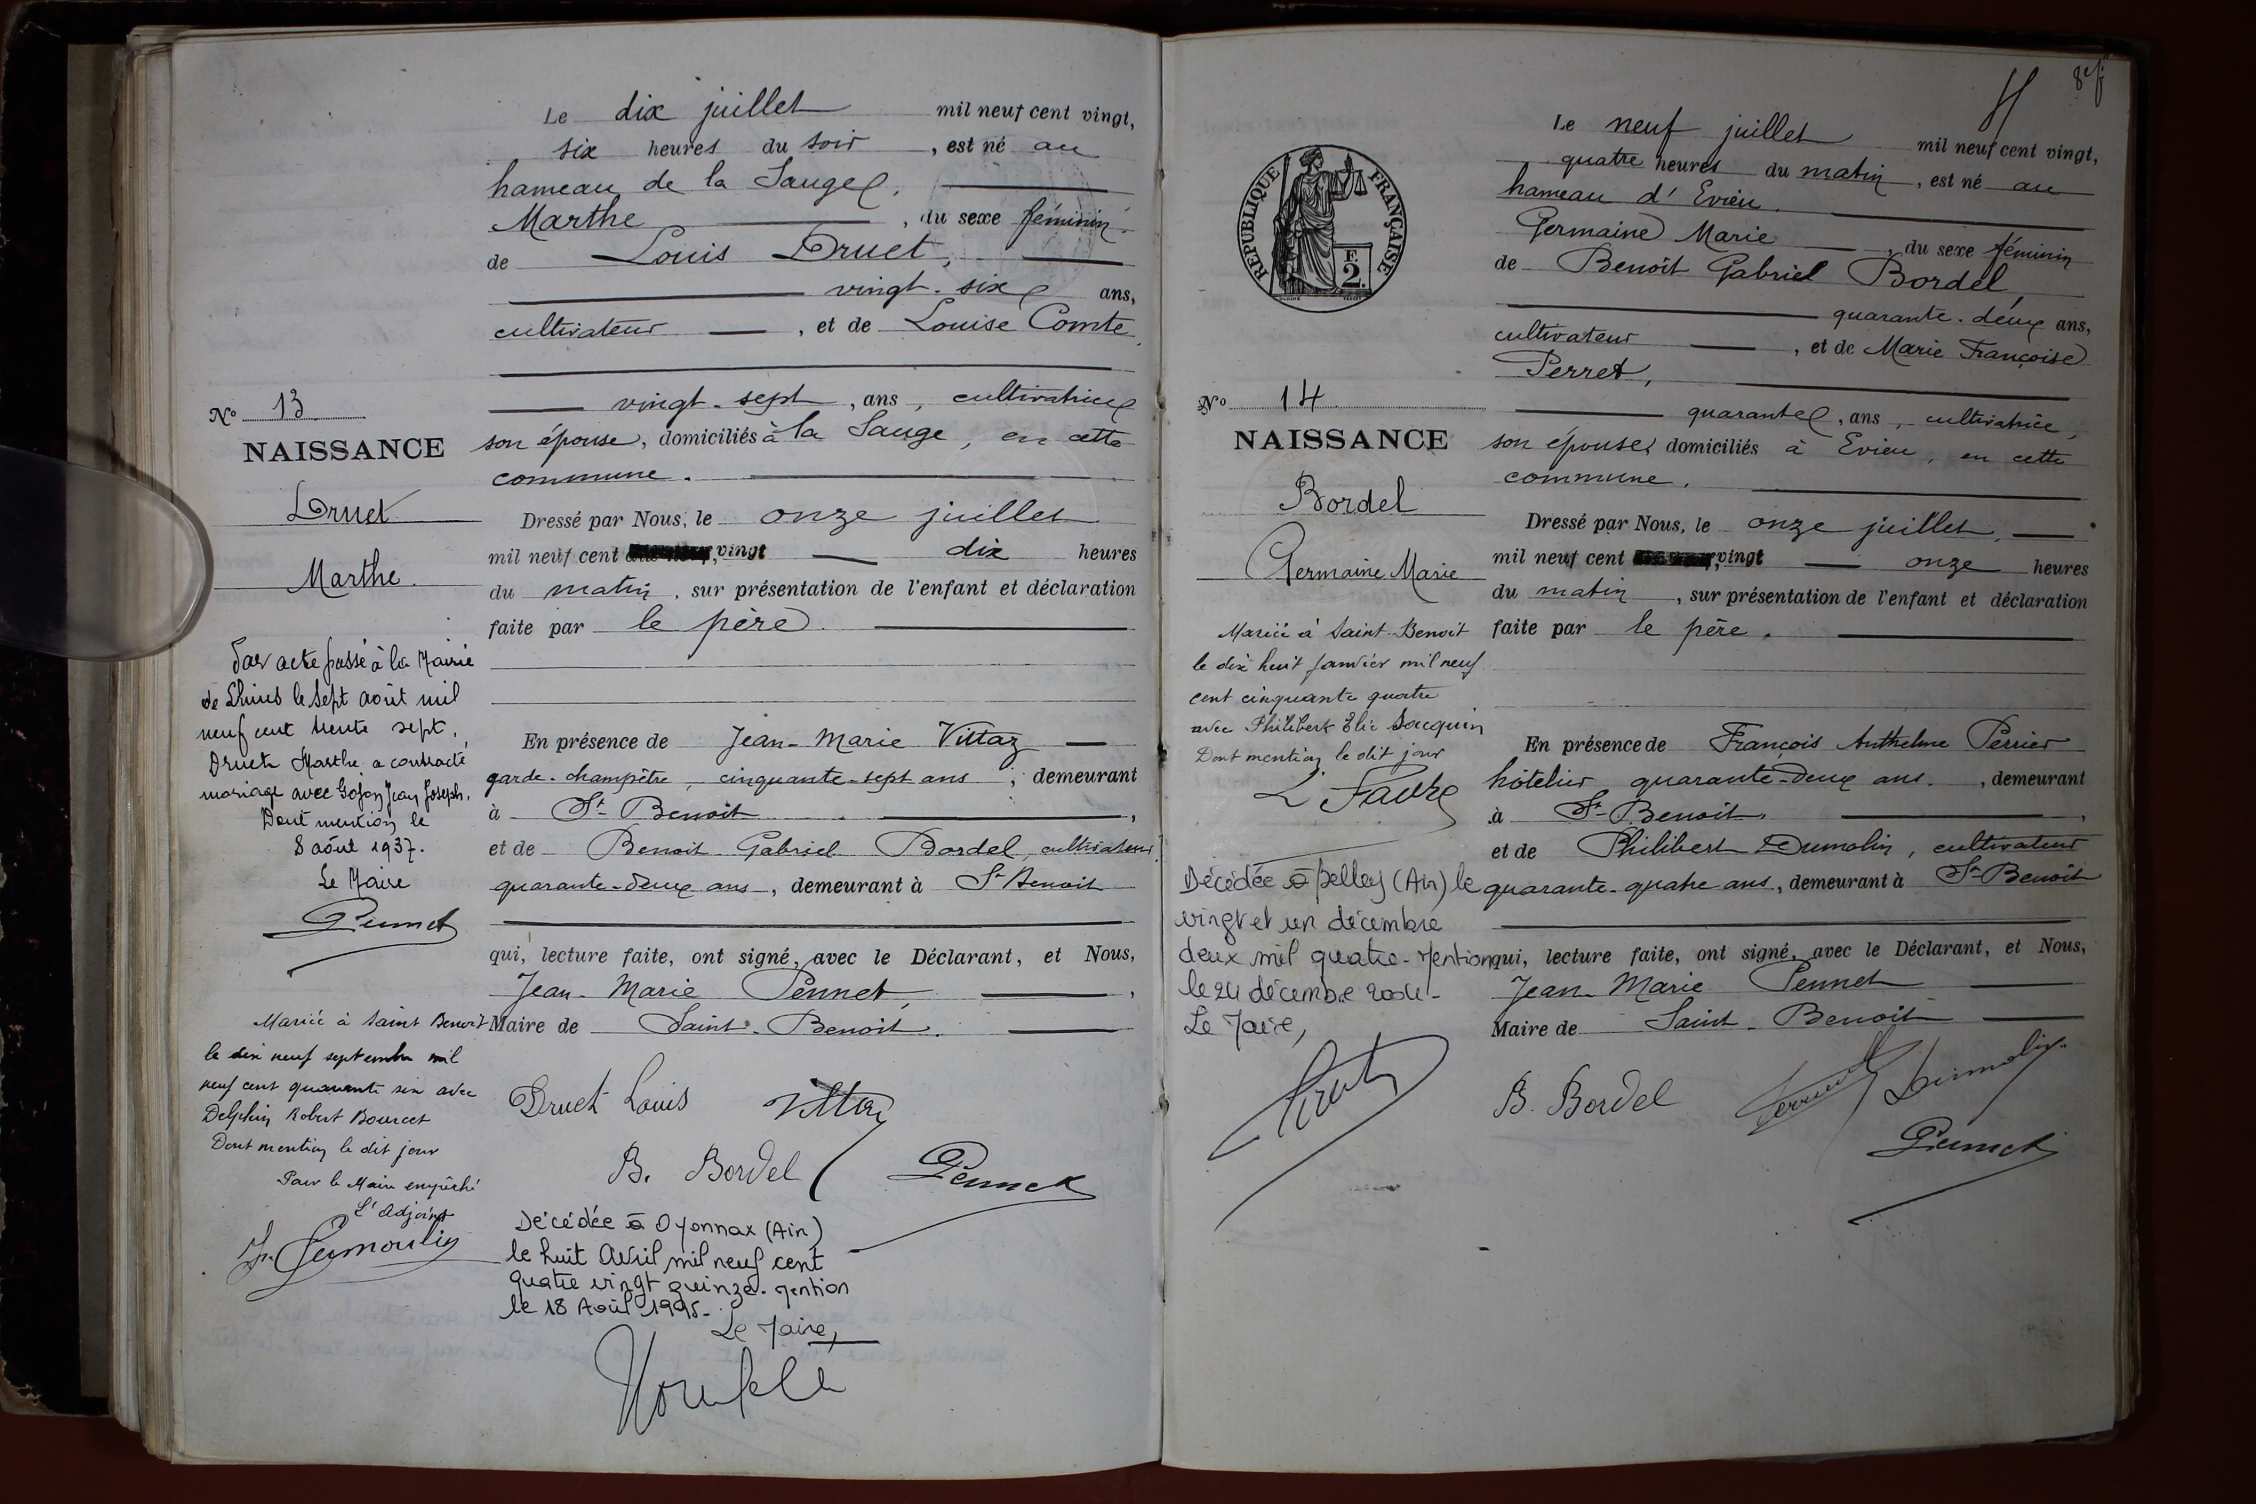 Le dix juillet mil neuf cent vingt,
six heures du soir, est né au
hameau de la Sauge,
Marthe, du sexe féminin
de Louis Druet,
vingt-six ans,
cultivateur, et de Louise Comte,
vingt-sept, ans, cultivatrice
son épouse, domiciliés à la Sauge, en cette
commune.
Dressé par Nous, le onze juillet
mil neuf cent vingt dix heures
du matin, sur présentation de l'enfant et déclaration
faite par le père.
En présence de Jean-Marie Vittaz
garde-champêtre, cinquante-sept ans, demeurant
à St Benoit,
et de Benoit Gabriel Bordel, cultivateur,
quarante-deux ans, demeurant à St Benoit
qui, lecture faite, ont signé, avec le Déclarant, et Nous,
Jean-Marie Pennet,
Maire de Saint-Benoit.
Druet Louis Vittaz
B. Bordel Pennet
Décédée à Oyonnax (Ain)
le huit Avril mil neuf cent
quatre vingt quinze. Mention
le 18 Août 1995.
Le Maire,
No 13
NAISSANCE
Druet
Marthe.
Par acte passé à la Mairie
de Lhuis le sept août mil
neuf cent trente sept,
Druet Marthe a contracté
mariage avec Gojon Jean Joseph.
Dont mention le
8 août 1937.
Le Maire
Pennet
Mariée à Saint Benoit
le dix neuf septembre mil
neuf cent quarante six avec
Delphin Robert Bourcet
Dont mention le dit jour
Pour le Maire empêché
L'adjoint
Dumoulin
8
Le neuf juillet mil neuf cent vingt,
quatre heures du matin, est né au
hameau d'Evieu.
Germaine Marie, du sexe féminin
de Benoit Gabriel Bordel,
quarante-deux ans,
cultivateur, et de Marie Françoise
Perret,
quarante, ans, cultivatrice,
son épouse, domiciliés à Evieu, en cette
commune.
Dressé par Nous, le onze juillet,
mil neuf cent vingt onze heures
du matin, sur présentation de l'enfant et déclaration
faite par le père.
En présence de François Anthelme Perrier
hôtelier quarante-deux ans, demeurant
à St-Benoit,
et de Philibert Dumolin, cultivateur
quarante-quatre ans, demeurant à St-Benoit
qui, lecture faite, ont signé, avec le Déclarant, et Nous,
Jean-Marie Pennet
Maire de Saint-Benoit
B. Bordel Perrier Dumolin
Pennet
RÉPUBLIQUE FRANÇAISE
F.
2.
No 14
NAISSANCE
Bordel
Germaine Marie
Mariée à Saint-Benoit
le dix huit janvier mil neuf
cent cinquante quatre
avec Philibert Elie Jacquin
Dont mention le dit jour
L. Favre
Décédée à Belley (Ain) le
vingt et un décembre
deux mil quatre - Mention
le 24 décembre 2004-
Le Maire,